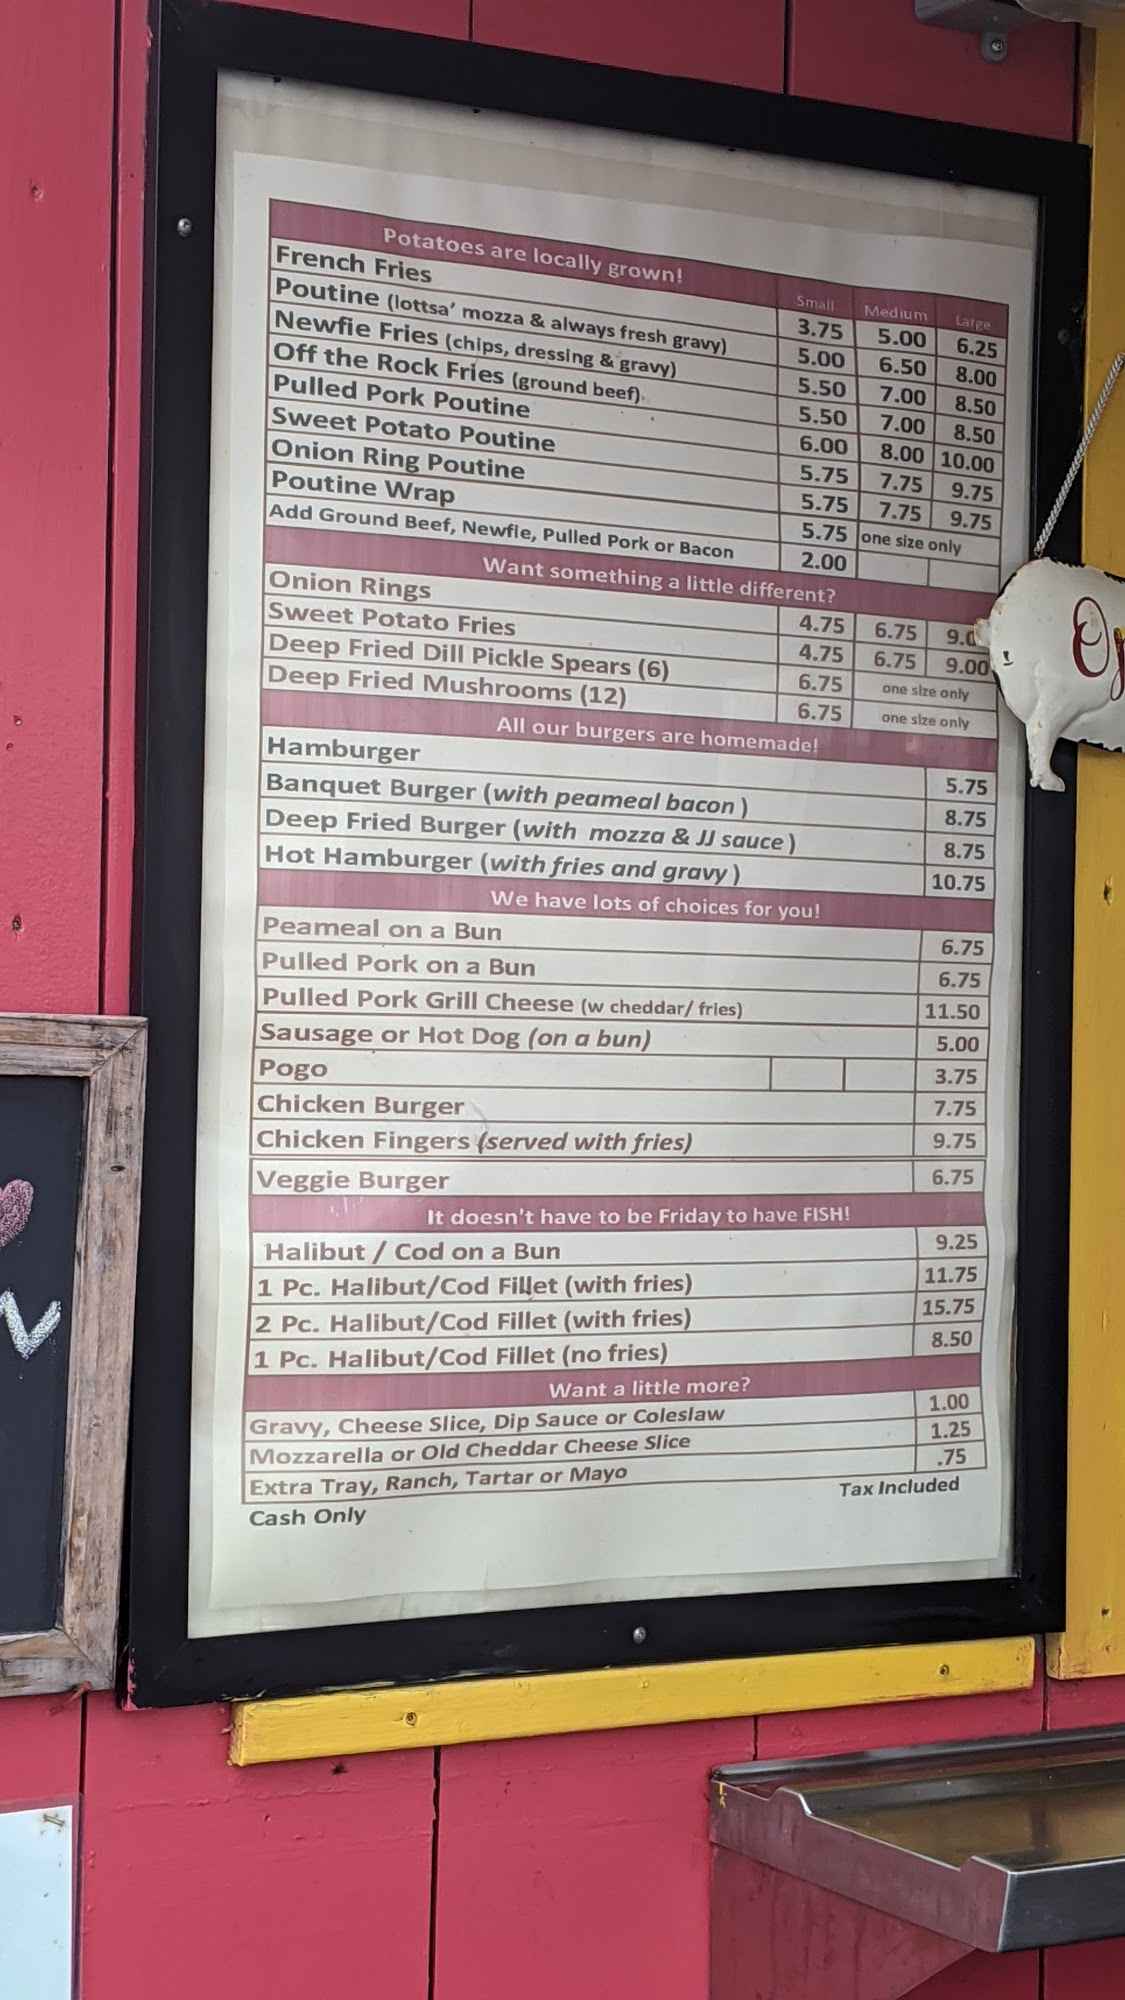 Potatoes are locally grown! Small Medium Large
French Fries 3.75 5.00 6.25
Poutine (lottsa' mozza & always fresh gravy) 5.00 6.50 8.00
Newfie Fries (chips, dressing & gravy) 5.50 7.00 8.50
Off the Rock Fries (ground beef) 5.50 7.00 8.50
Pulled Pork Poutine 6.00 8.00 10.00
Sweet Potato Poutine 5.75 7.75 9.75
Onion Ring Poutine 5.75 7.75 9.75
Poutine Wrap 5.75 one size only
Add Ground Beef, Newfie, Pulled Pork or Bacon 2.00
Want something a little different?
Onion Rings 4.75 6.75 9.0
Sweet Potato Fries 4.75 6.75 9.00
Deep Fried Dill Pickle Spears (6) 6.75 one size only
Deep Fried Mushrooms (12) 6.75 one size only
All our burgers are homemade!
Hamburger 5.75
Banquet Burger (with peameal bacon ) 8.75
Deep Fried Burger (with mozza & JJ sauce ) 8.75
Hot Hamburger (with fries and gravy ) 10.75
We have lots of choices for you!
Peameal on a Bun 6.75
Pulled Pork on a Bun 6.75
Pulled Pork Grill Cheese (w cheddar/ fries) 11.50
Sausage or Hot Dog (on a bun) 5.00
Pogo 3.75
Chicken Burger 7.75
Chicken Fingers (served with fries) 9.75
Veggie Burger 6.75
It doesn't have to be Friday to have FISH!
Halibut / Cod on a Bun 9.25
1 Pc. Halibut/Cod Fillet (with fries) 11.75
2 Pc. Halibut/Cod Fillet (with fries) 15.75
1 Pc. Halibut/Cod Fillet (no fries) 8.50
Want a little more?
Gravy, Cheese Slice, Dip Sauce or Coleslaw 1.00
Mozzarella or Old Cheddar Cheese Slice 1.25
Extra Tray, Ranch, Tartar or Mayo .75
Cash Only Tax Included